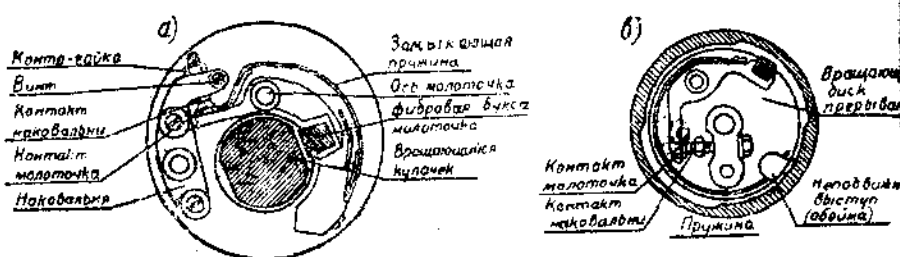 а)
Контр-гайка
Винт
Контакт
наковальни
Контакт
молоточка
Наковальня
Замыкающая
пружина
Ось молоточка
Фибровая букса
молоточка
Вращающийся
кулачек
в)
Контакт
молоточка
Контакт
наковальни
Пружина
Вращающ
диск
прерыва
Неподвижн
выступ
(обойма)